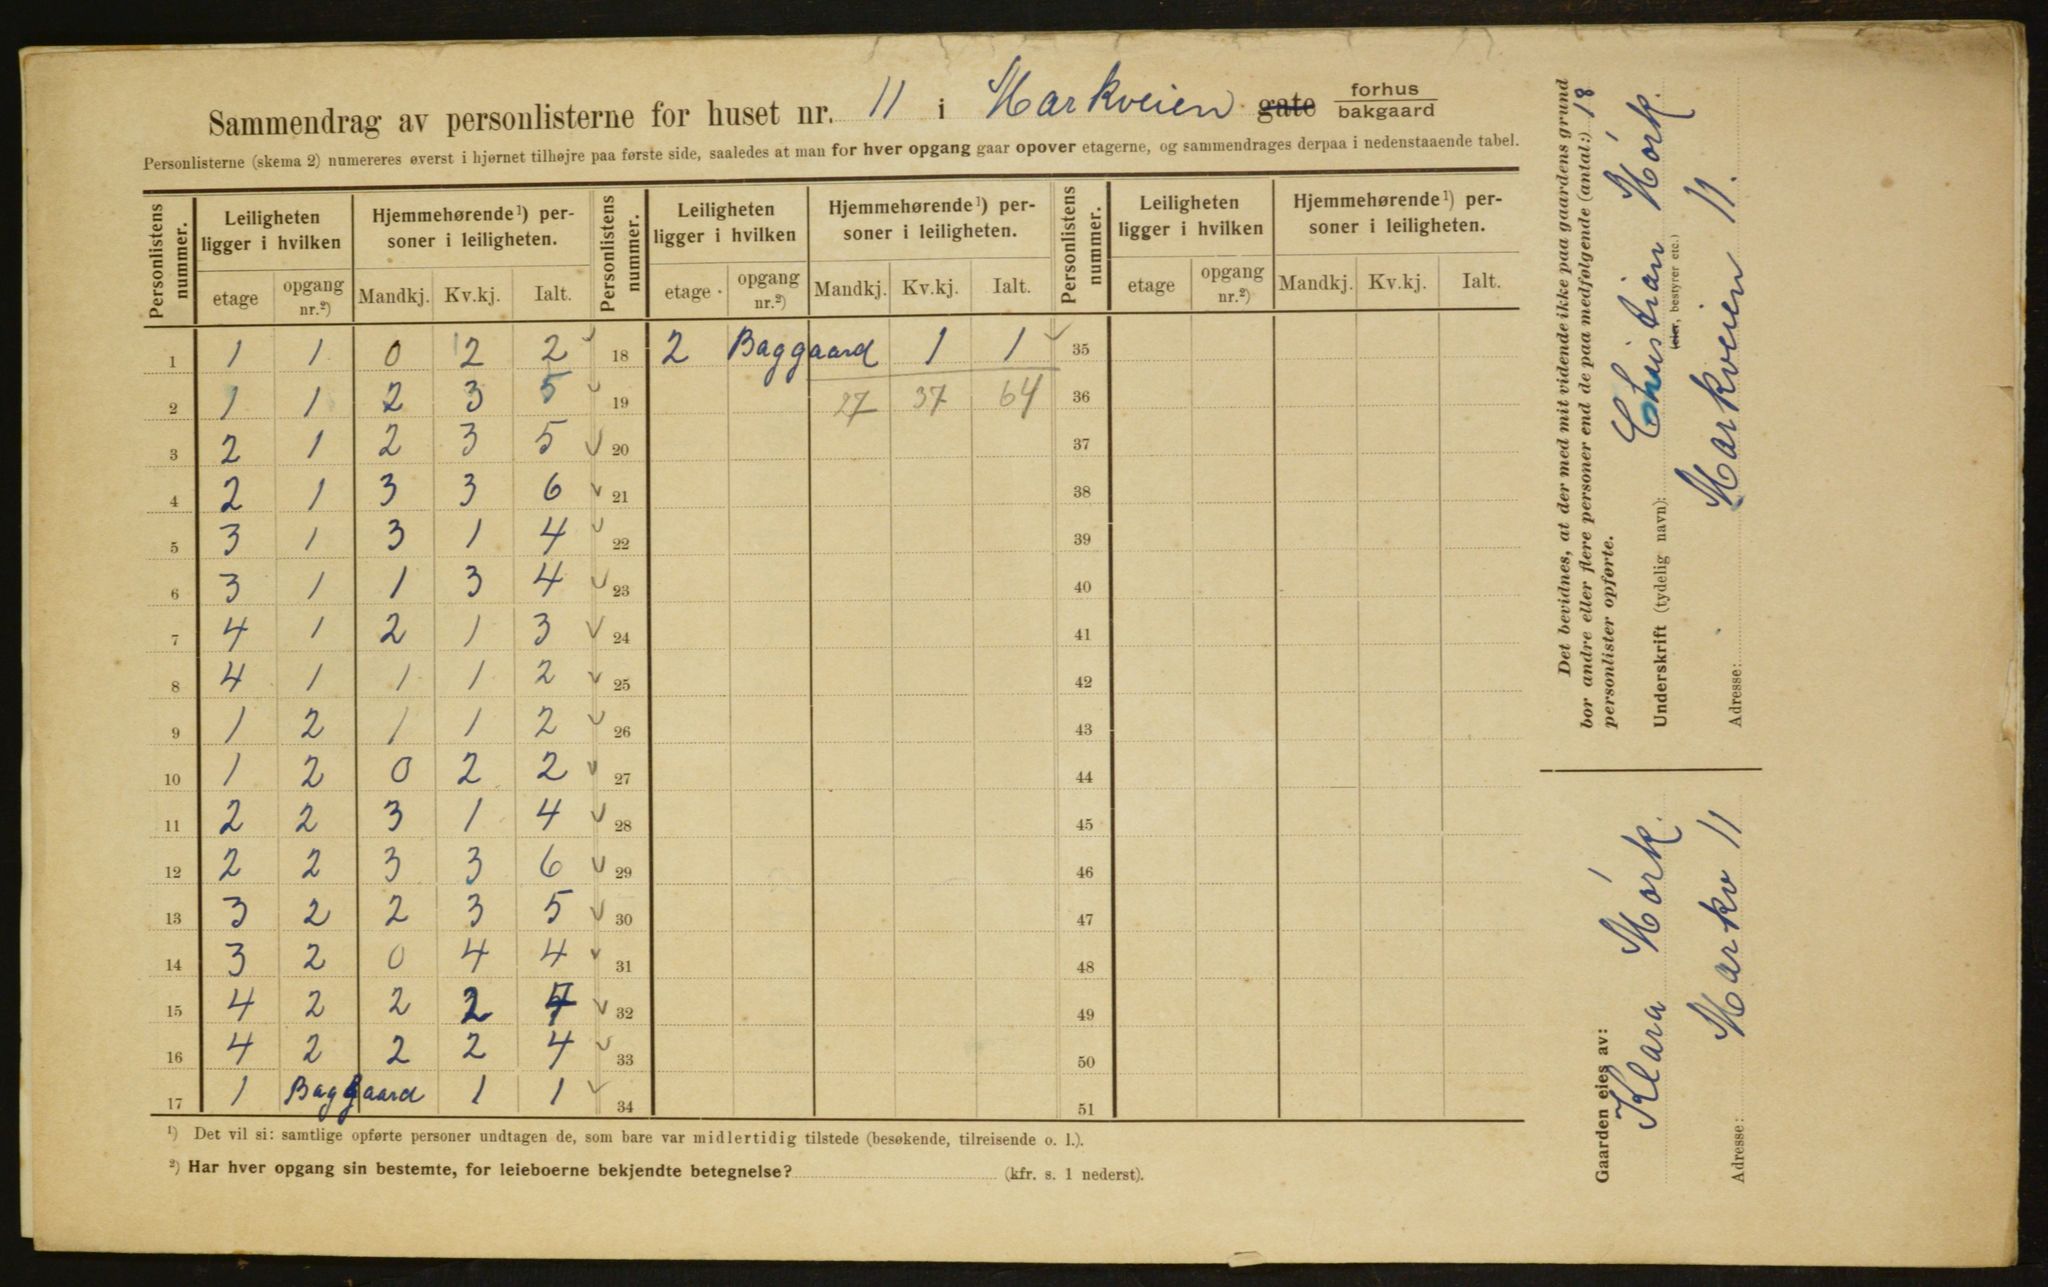 Sammendrag av personlisterne for huset nr. 11 i Markveien gate forhus bakgaard
Personlisterne (skema 2) numereres øverst i hjørnet tilhøjre paa første side, saaledes at man for hver opgang gaar opover etagerne, og sammendrages derpaa i nedenstaaende tabel.
Personlistens nummer. Leiligheten ligger i hvilken Hjemmehørende¹) personer i leiligheten. Personlistens nuumer. Leiligheten ligger i hvilken Hjemmehørende¹) personer i leiligheten. Personlistens nummer. Leiligheten ligger i hvilken Hjemmehørende¹) personer i leiligheten.
etage opgang nr.²) Mandkj. Kv.kj. Ialt. etage opgang nr.²) Mandkj. Kv.kj. Ialt. etage opgang nr.²) Mandkj. Kv.kj. Ialt.
1 1 1 0 2 2 18 2 Baggaard 1 1 35
2 1 1 2 3 5 19 27 37 64 36
3 2 1 2 3 5 20 37
4 2 1 3 3 6 21 38
5 3 1 3 1 4 22 39
6 3 1 1 3 4 23 40
7 4 1 2 1 3 24 41
8 4 1 1 1 2 25 42
9 1 2 1 1 2 26 43
10 1 2 0 2 2 27 44
11 2 2 3 1 4 28 45
12 2 2 3 3 6 29 46
13 3 2 2 3 5 30 47
14 3 2 0 4 4 31 48
15 4 2 2 2 32 49
16 4 2 2 2 4 33 50
17 1 Baggaard 1 1 34 51
¹) Det vil si: samtlige opførte personer undtagen de, som bare var midlertidig tilstede (besøkende, tilreisende o. l.).
²) Har hver opgang sin bestemte, for leieboerne bekjendte betegnelse? (kfr. s. 1 nederst).
Det bevidnes, at der med mit vidende ikke paa gaardens grund
bor andre eller flere personer end de paa medfølgende (antal:) 18
personlister opførte.
Underskrift (tydelig navn): Christian Mórk.
(eier, bestyrer etc.)
Adresse: Markveien 11.
Gaarden eies av:
Klara Mórk.
Adresse: Markv 11